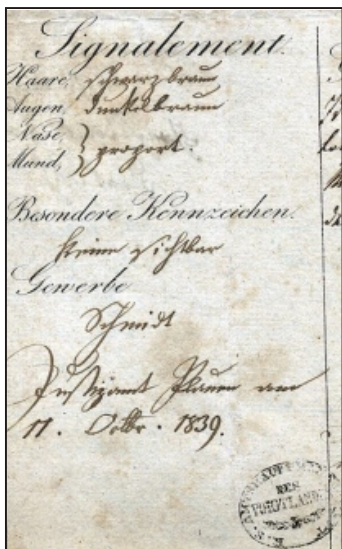 Signalement.
Haare, schwarzbraun
Augen, dunkelbraun
Nase, } proport.
Mund,
Besondere Kennzeichen.
Keine sichtbar
Gewerbe
Schmidt
Justizamt Plauen am
11. Octbr. 1839.
VOIGTLAND